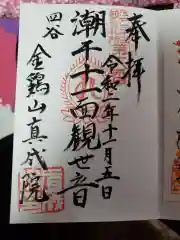 奉拝
令和一年十一月五日
潮干十一面観世音
四谷
金鶏山真成院